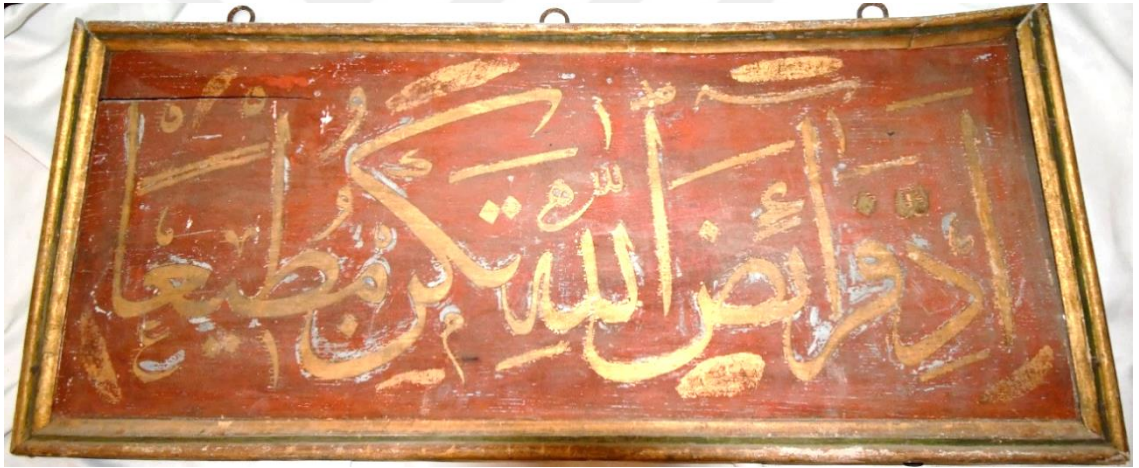 أَدِّ فَرَائِضَ اللّٰهِ تَكُنْ مُطِيعًا